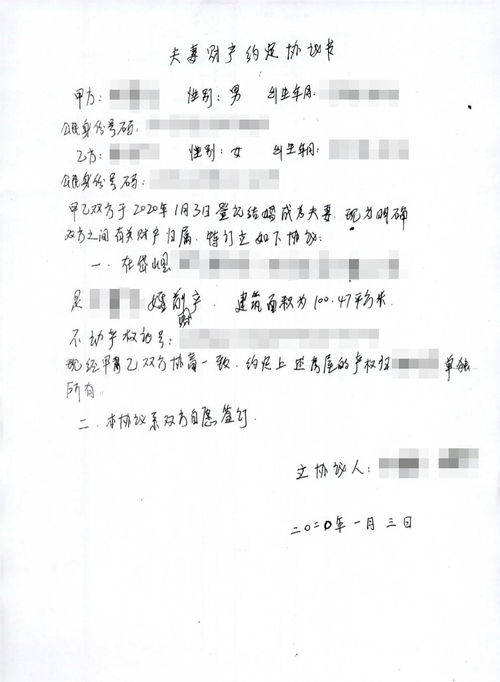 夫妻财产约定协议书
甲方： 性别：男 出生年月：
公民身份号码：
乙方： 性别：女 出生年月：
公民身份号码：
甲乙双方于2020年1月3日登记结婚成为夫妻，现为明确
双方之间有关财产归属，特订立如下协议：
一、在岱山县
是 婚前财产 建筑面积为100.47平方米，
不动产权证号：
现经甲乙双方协商一致，约定上述房屋的产权归 单独
所有。
二、本协议系双方自愿签订。
立协议人：
二〇二〇年一月三日